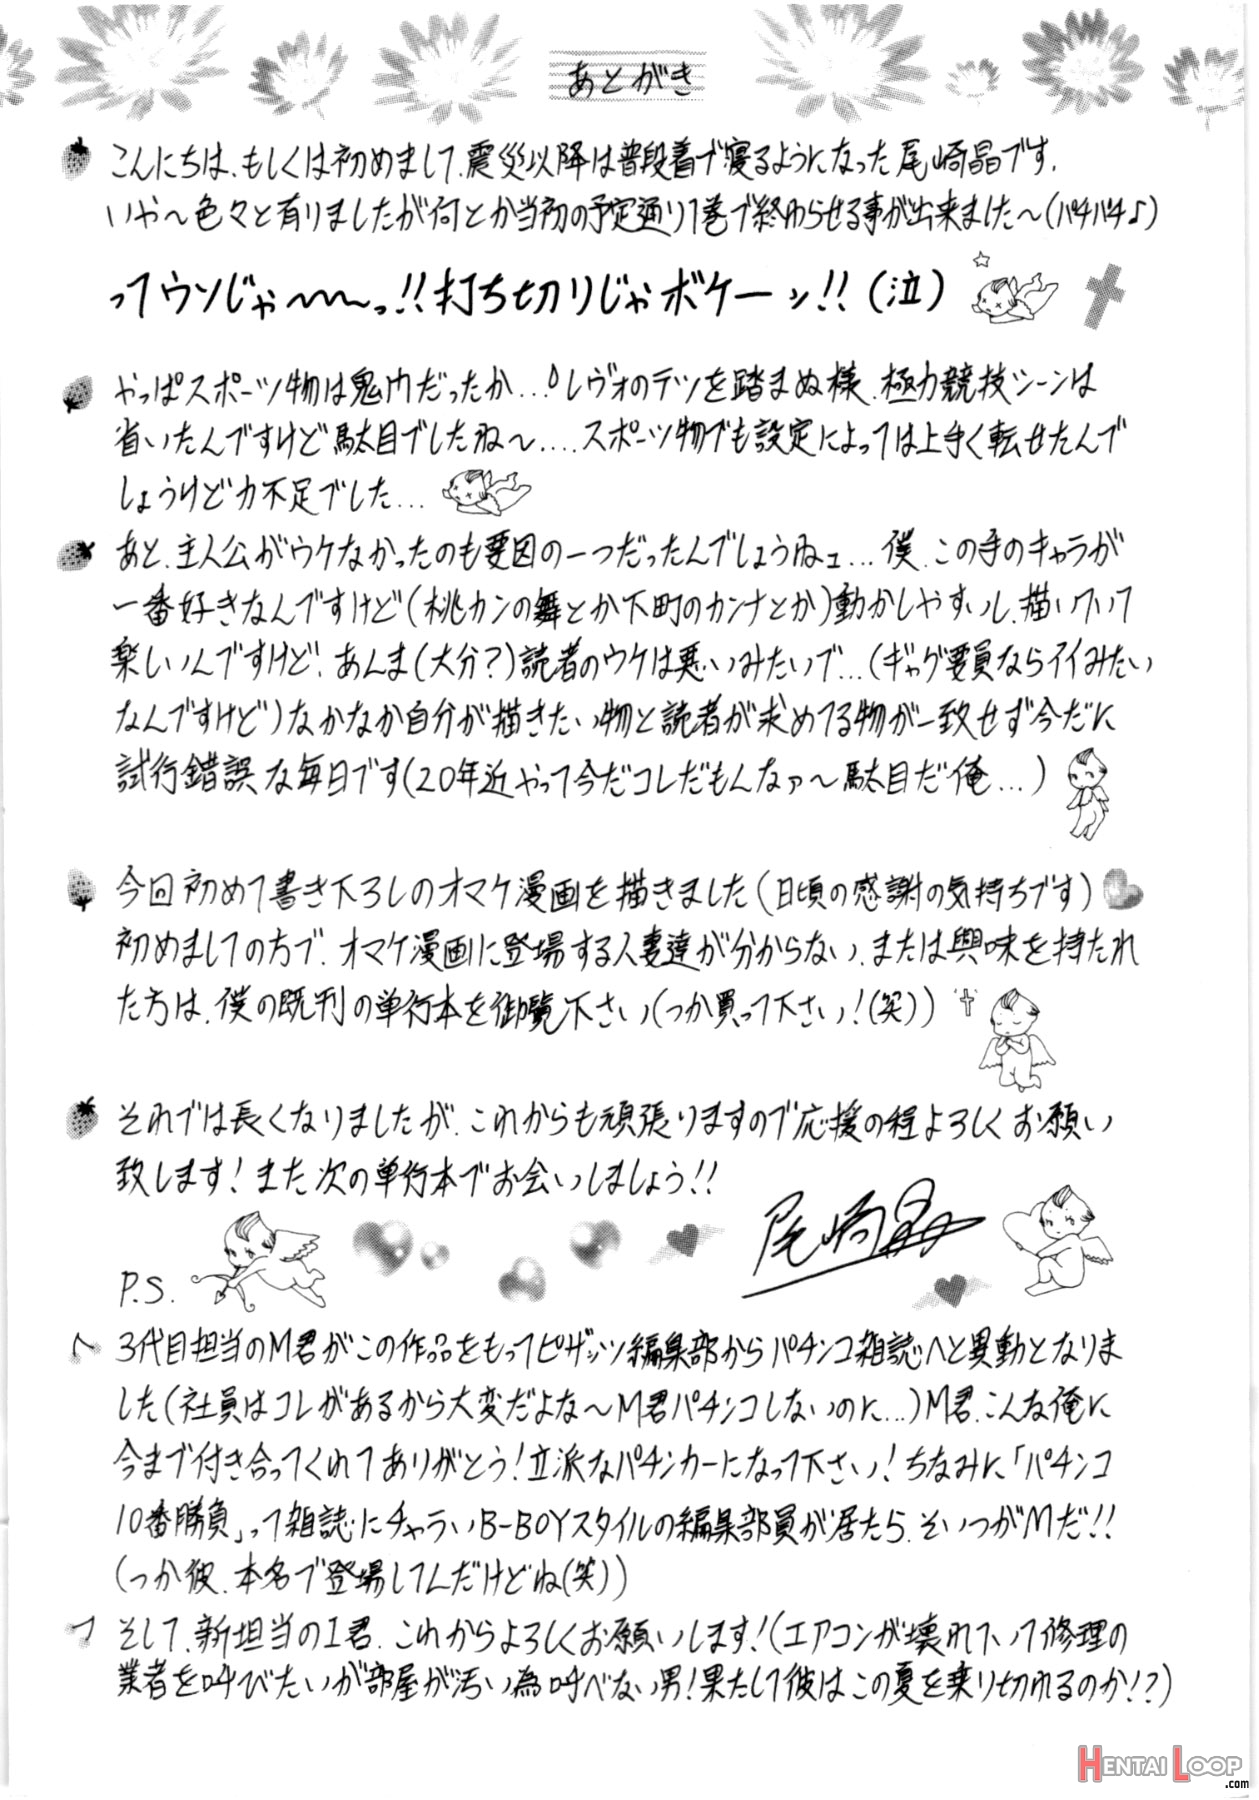 あとがき
こんにちは、もしくは初めまして、震災以降は普段着で寝るようになった尾崎晶です。
いや〜色々と有りましたが何とか当初の予定通り1巻で終わらせる事が出来ました〜(パチパチ♪)
ってウソじゃ〜〜〜っ!!打ち切りじゃボケーッ!!(泣)
やっぱスポーツ物は鬼門だったか...レヴォのテツを踏まぬ様、極力競技シーンは
省いたんですけど駄目でしたね〜....スポーツ物でも設定によっては上手く転せたんで
しょうけど力不足でした...
あと、主人公がウケなかったのも要因の一つだったんでしょうねェ...僕、この手のキャラが
一番好きなんですけど(桃カンの舞とか下町のカンナとか)動かしやすいし、描いていて
楽しいんですけど、あんま(大分?)読者のウケは悪いみたいで...(ギャグ要員ならイイみたい
なんですけど)なかなか自分が描きたい物と読者が求めてる物が一致せず今だに
試行錯誤な毎日です(20年近やって今だコレだもんなァ〜駄目だ俺...)
今回初めて書き下ろしのオマケ漫画を描きました(日頃の感謝の気持ちです)
初めましての方で、オマケ漫画に登場する人妻達が分からない、または興味を持たれ
た方は、僕の既刊の単行本を御覧下さい(つか買って下さい!(笑))
それでは長くなりましたが、これからも頑張りますので応援の程よろしくお願い
致します!また次の単行本でお会いしましょう!!
尾崎晶
P.S.
3代目担当のM君がこの作品をもってピザッツ編集部からパチンコ雑誌へと異動となりま
した(社員はコレがあるから大変だよな〜M君パチンコしないのに...)M君、こんな俺に
今まで付き合ってくれてありがとう!立派なパチンカーになって下さい!ちなみに「パチンコ
10番勝負」って雑誌にチャラいB-BOYスタイルの編集部員が居たら、そいつがMだ!!
(つか彼、本名で登場してんだけどね(笑))
そして、新担当のI君、これからよろしくお願いします!(エアコンが壊れていて修理の
業者を呼びたいが部屋が汚い為呼べない男!果たして彼はこの夏を乗り切れるのか!?)
HENTAI LOOP
.com